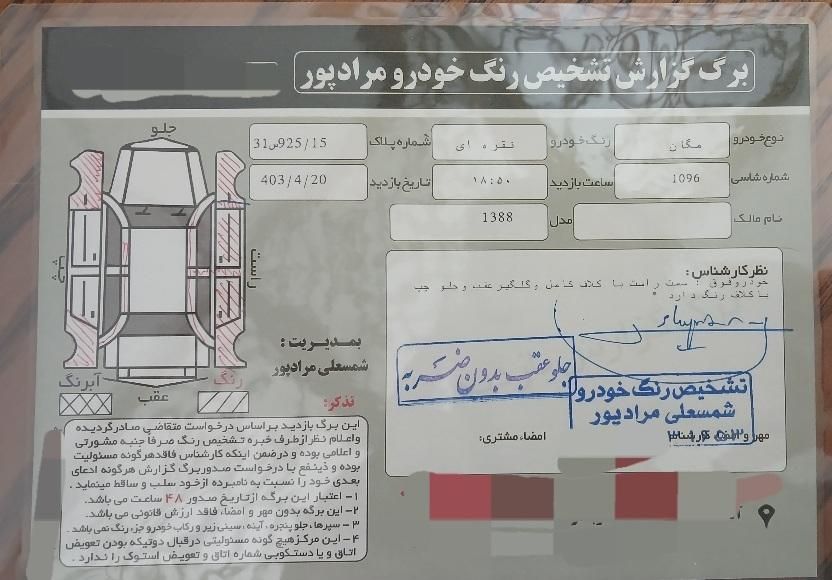 برگ گزارش تشخیص رنگ خودرو مرادپور
نوع خودرو مگان رنگ خودرو نقره ای شماره پلاک 31س925/15
شماره شاسی 1096 ساعت بازدید ۱۸:۵۰ تاریخ بازدید 403/4/20
نام مالک مدل 1388
جلو
چپ
راست
عقب
آبرنگ
رنگ
نظر کارشناس :
خودروفوق : سمت راست با کلاف کامل وگلگیر عقب وجلو چپ
باکلاف رنگ دارد *
جلو عقب بدون ضربه
تشخیص رنگ خودرو
شمسعلی مرادپور
مهر و امضاء کارشناس
امضاء مشتری:
بمدیریت :
شمسعلی مرادپور
تذکر:
این برگ بازدید براساس درخواست متقاضی صادرگردیده
واعلام نظر ازطرف خبره تشخیص رنگ صرفاً جنبه مشورتی
و اعلامی بوده و درضمن اینکه کارشناس فاقدهرگونه مسئولیت
بوده و ذینفع با درخواست صدوربرگ گزارش هرگونه ادعای
بعدی خود را نسبت به نامبرده ازخود سلب و ساقط مینماید.
۱- اعتبار این برگه ازتاریخ صدور ۴۸ ساعت می باشد.
۲- این برگه بدون مهر و امضاء فاقد ارزش قانونی می باشد.
۳- سپرها، جلو پنجره، آینه، سینی زیر و رکاب خودرو جزء رنگ نمی باشد.
۴- این مرکز هیچ گونه مسئولیتی درقبال دوتیکه بودن تعویض
اتاق و یا دستکوبی شماره اتاق و تعویض استوک را ندارد.